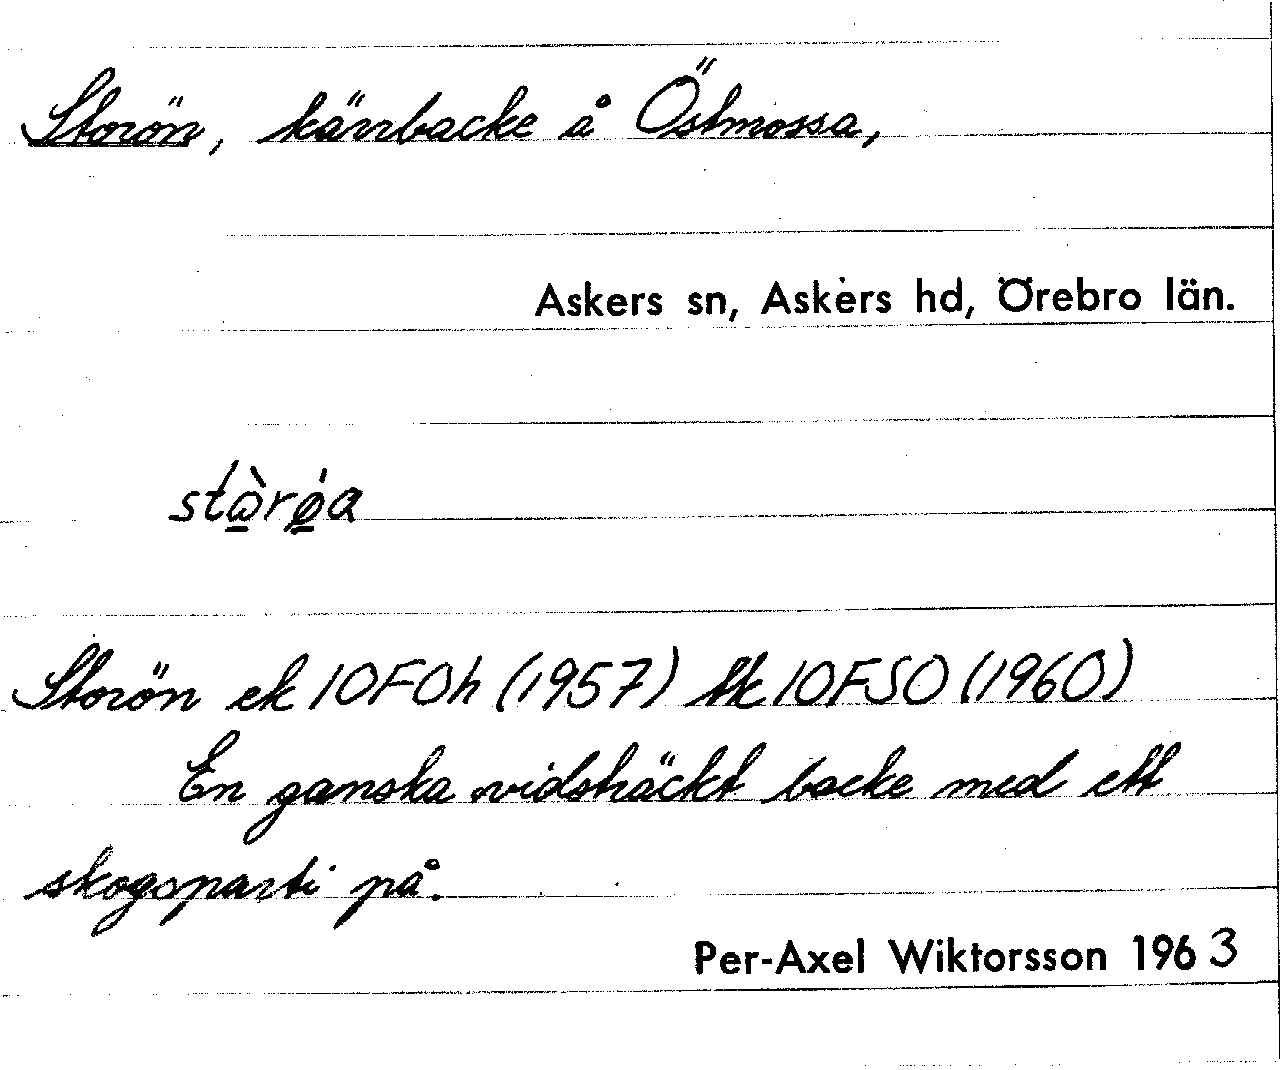 Storön, kärrbacke å Östmossa,
Askers sn, Askers hd, Örebro län.
stὼ̲rǿ̲a
Storön ek 10F0h (1957) tk 10FSO (1960)
En ganska vidsträckt backe med ett
skogsparti på.
Per-Axel Wiktorsson 1963